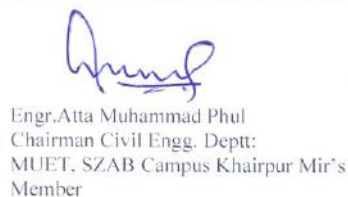 Engr.Atta Muhammad Phul
Chairman Civil Engg. Deptt:
MUET, SZAB Campus Khairpur Mir's
Member